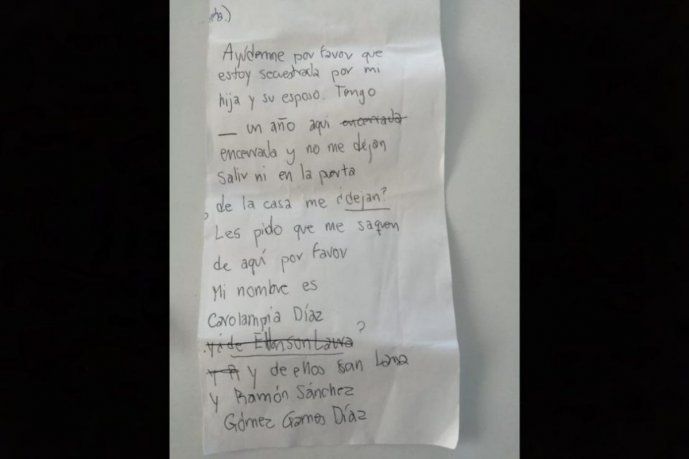 Ayúdenme por favor que
estoy secuestrada por mi
hija y su esposo. Tengo
_ un año aqui encerrada
encerrada y no me dejan
salir ni en la porta
de la casa me ¿dejan?
Les pido que me saquen
de aquí por favor
Mi nombre es
Carolampia Díaz
y de Ellon son Laura ?
y de ellos san Lana
y Ramón Sánchez
Gómez Gamos Díaz